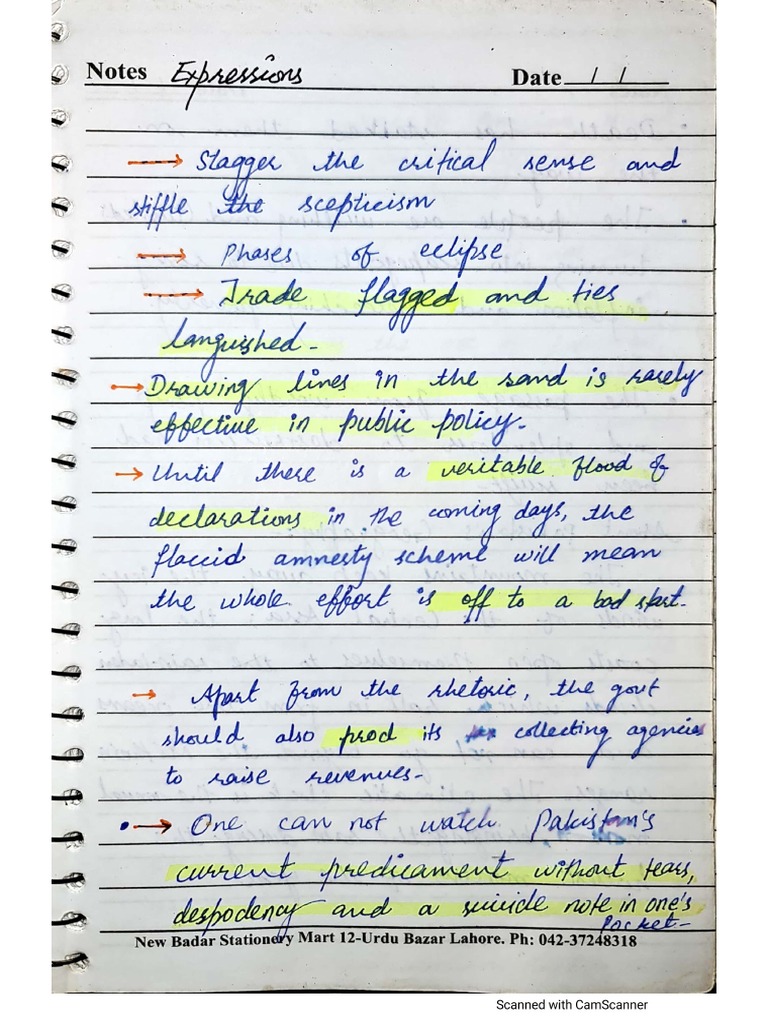 Notes Expressions Date / /
→ Stagger the critical sense and
stiffle the scepticism
→ Phases of eclipse
→ Trade flagged and ties
languished -
→ Drawing lines in the sand is rarely
effective in public policy.
→ Until there is a veritable flood of
declarations in the coming days, the
flaccid amnesty scheme will mean
the whole effort is off to a bad start.
→ Apart from the rhetoric, the govt
should also prod its collecting agencies
to raise revenues.
→ One can not watch Pakistan's
current predicament without tears,
despodency and a suicide note in one's
Pocket-
New Badar Stationery Mart 12-Urdu Bazar Lahore. Ph: 042-37248318
Scanned with CamScanner